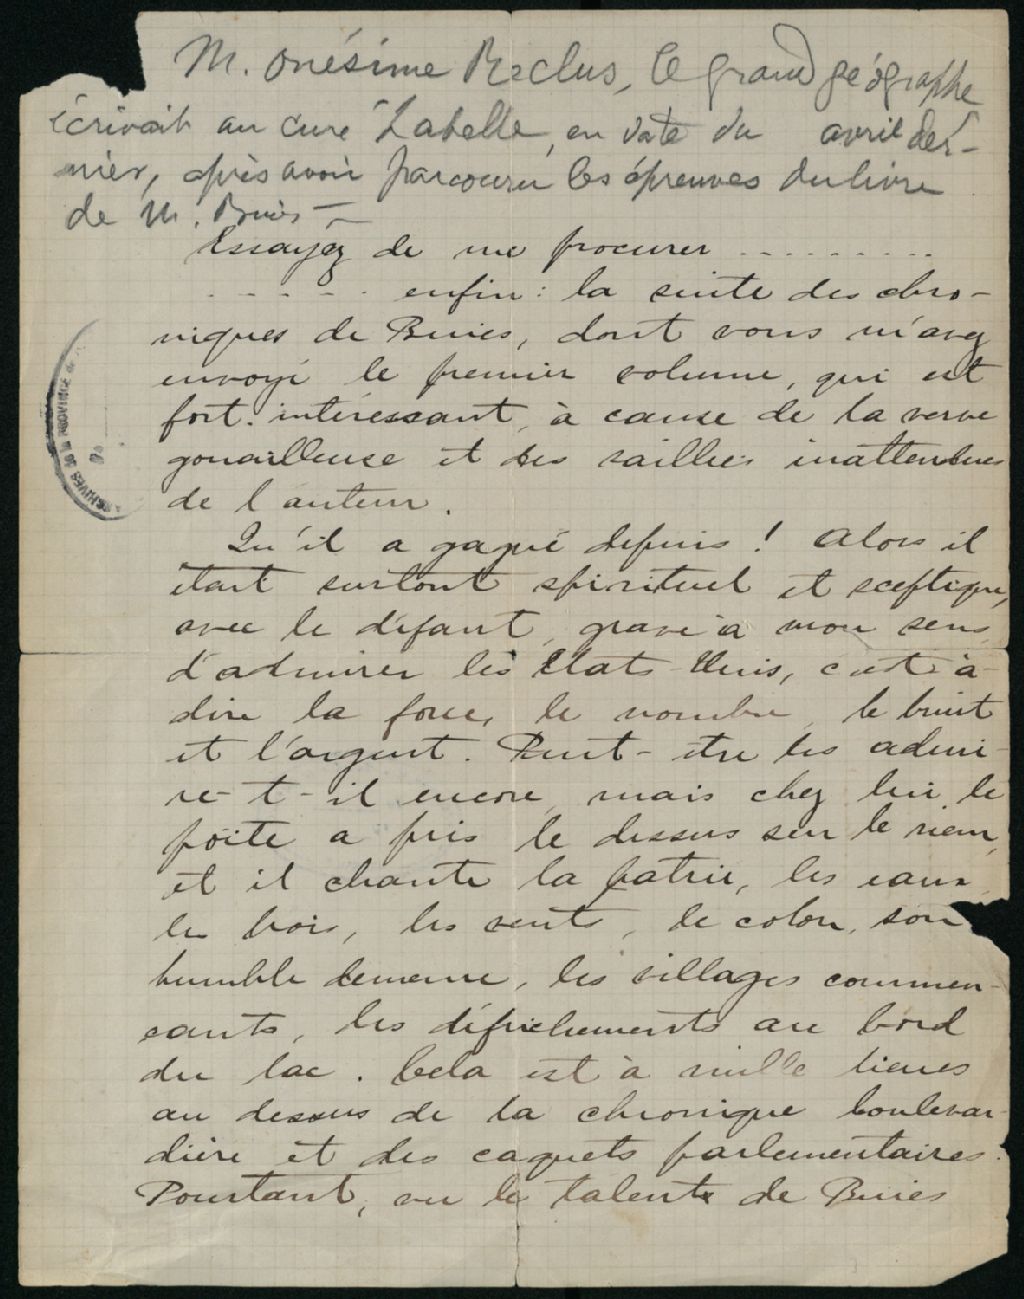 M. Onésime Reclus, le grand géographe
écrivait au curé Labelle, en date du avril der-
nier, après avoir parcouru les épreuves du livre
de M. Buies —
Essayez de me procurer .........
...... enfin : la suite des chro-
niques de Buies, dont vous m'avez
envoyé le premier volume, qui est
fort intéressant, à cause de la verve
gouailleuse et des saillies inattendues
de l'auteur.
Qu'il a gagné depuis ! Alors il
était surtout spirituel et sceptique,
avec le défaut, grave à mon sens,
d'admirer les Etats-Unis, c'est-à-
dire la force, le nombre, le bruit
et l'argent. Peut-être les admi-
re-t-il encore, mais chez lui le
poëte a pris le dessus sur le
et il chante la patrie, les eaux,
les bois, les vents, le colon, son
humble demeure, les villages commen-
çants, les défrichements au bord
du lac. Cela est à mille lieues
au dessus de la chronique boulevar-
dière et des caquets parlementaires.
Pourtant, vu le talent de Buies
ARCHIVES DE LA PROVINCE DE